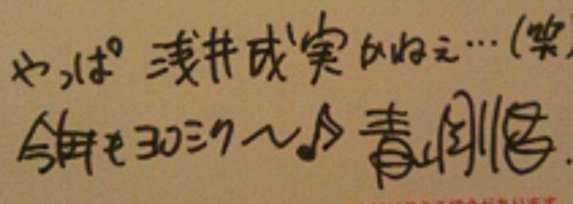 やっぱ 浅井成実かねぇ…(笑)
今年もヨロシク〜♪ 青山剛昌.